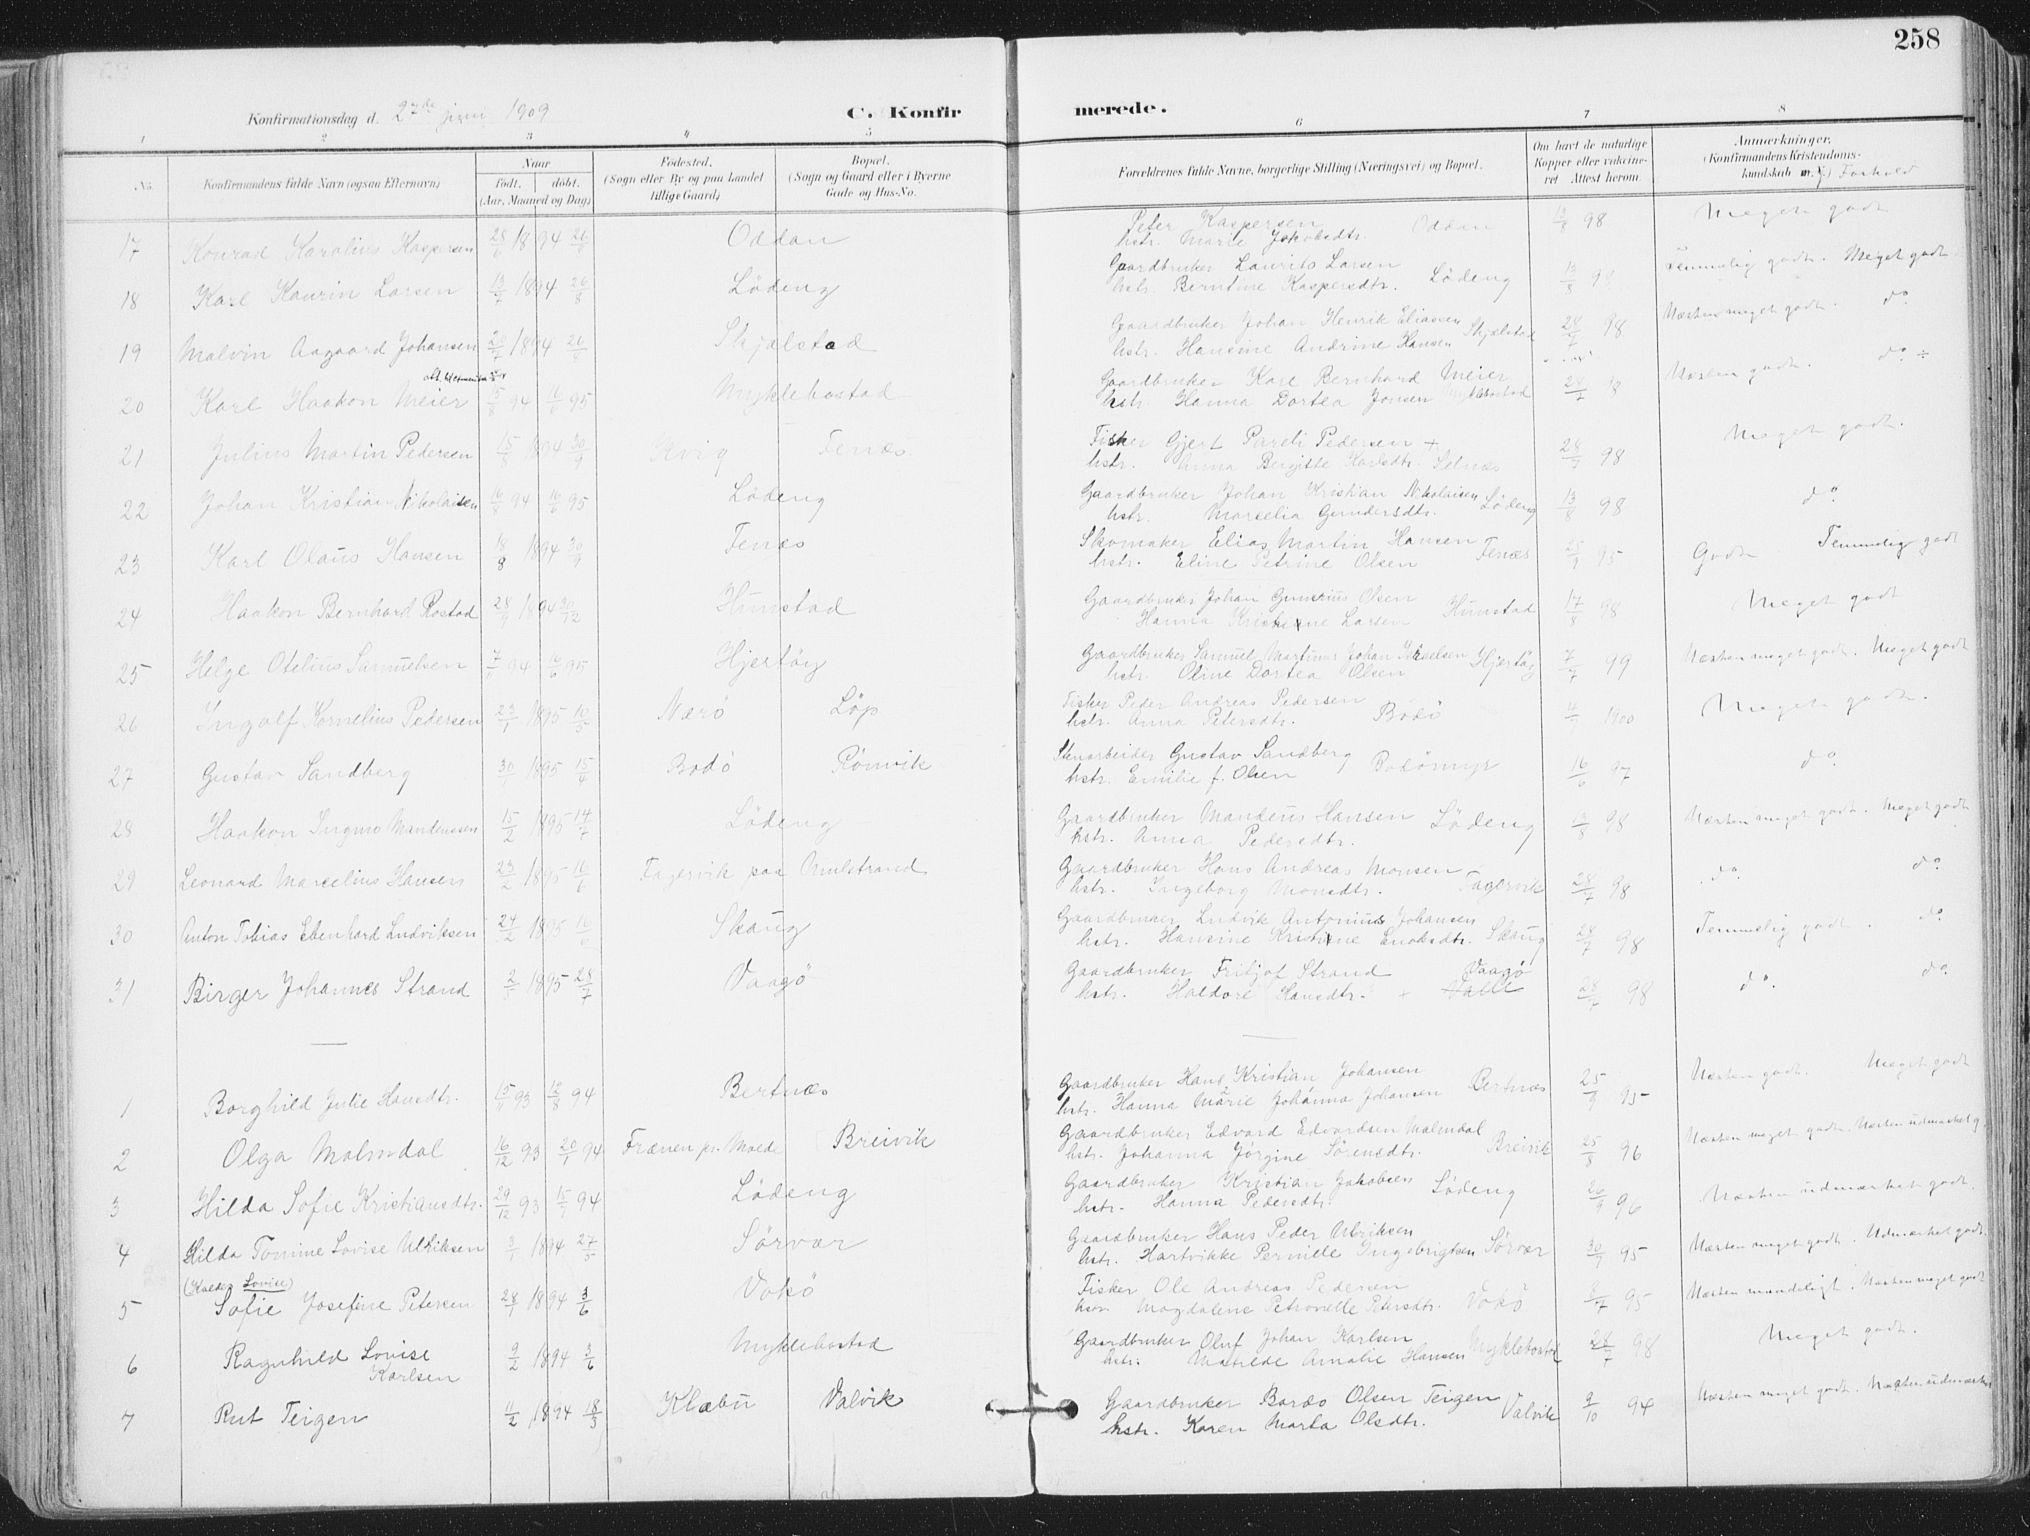 258
Konfirmationsdag d. 27de juni 1909
C. Konfirmerede.
1 2 3 4 5 6 7 8
No. Konfirmandens fulde Navn (ogsaa Efternavn) Naar født, døbt. (Aar, Maaned og Dag) Fødested. (Sogn eller By og paa Landet tillige Gaard) Bopæl. (Sogn og Gaard eller i Byerne Gade og Hus-No. Forældrenes fulde Navne, borgerlige Stilling (Næringsvei) og Bopæl. Om havt de naturlige Kopper eller vakcineret Attest herom. Anmærkninger. (Konfirmandens Kristendomskundskab Forhold
17 Konrad Karolius Kaspersen 28/6 1894 26/8 Oddan Peter Kaspersen hstr. Marie Jakobsdtr. Oddan 13/8 98 Meget godt
18 Karl Kaurin Larsen 13/7 1894 26/8 Løding Gaardbruker Laurits Larsen hstr. Berntine Kaspersdtr. Løding 13/8 98 Temmelig godt. Meget godt
19 Malvin Aagaard Johansen 20/7 1894 26/8 Skjælstad Gaardbruker Johan Henrik Eliassen hstr. Hansine Andrine Hansen Skjælstad 28/7 98 Næsten meget godt. do.
20 Karl Haakon Meier 15/8 94 16/6 95 Myklebostad Gaardbruker Karl Bernhard Meier hstr. Hanna Dortea Jonsen Myklebostad 28/7 98 Næsten godt. do. ÷
21 Julius Martin Pedersen 15/8 1894 30/9 Kvig Fenæs Fisker Gjert Pareli Pedersen + hstr. Anna Bergitte Karlsdtr. 28/7 98 Meget godt.
22 Johan Kristian Nikolaisen 16/8 94 16/6 95 Løding Gaardbruker Johan Kristian Nikolaisen hstr. Marcelia Gundersdtr. Løding 13/8 98 do
23 Karl Olaus Hansen 18/8 1894 30/9 Fenæs Skomaker Elias Martin Hansen hstr. Eline Petrine Olsen Fenæs 25/9 95 Godt Temmelig godt
24 Haakon Bernhard Rostad 28/9 1894 30/12 Hunstad Gaardbruker Johan Gunerius Olsen Hanna Kristine Larsen Hunstad 17/8 98 Meget godt
25 Helge Otelius Samuelsen 7/11 94 16/6 95 Hjertøy Gaardbruker Samuel Martinus Johan Israelsen hstr. Oline Dortea Olsen Hjertøy 7/7 99 Næsten meget godt. Meget godt
26 Ingolf Kornelius Pedersen 23/1 1895 10/5 Nærø Løp Fisker Peder Andreas Pedersen hstr. Anna Petersdtr. Bodø 1900 Meget godt.
27 Gustav Sandberg 30/1 1895 15/4 Bodø Rønvik Stenarbeider Gustav Sandberg hstr. Emilie f. Olsen Bodømyr 16/6 97 do
28 Haakon Ingmo Mandeussen 15/2 1895 14/7 Løding Gaardbruker Mandeus Hansen hstr. Anna Pedersdtr. Løding 13/8 98 Næsten meget godt. Meget godt
29 Leonard Marcelius Hansen 23/2 1895 16/6 Fagervik paa Gaardbruker Hans Andreas Monsen hstr. Ingeborg Monsdtr. Fagervik 28/7 98 do. do
30 Anton Tobias Ebenhard Ludviksen 24/2 1895 16/6 Skaug Gaardbruker Ludvik Antonius Johansen hstr. Hansine Kristine Enoksdtr. Skaug 28/7 98 Temmelig godt. do
31 Birger Johannes Strand 1895 28/7 Vaagø Gaardbruker Fritjof Strand hstr. Haldore Hansdtr. + Vaagø Valle 28/7 98 do. do
1 Borghild Julie Hansdtr. 15/11 93 12/8 94 Bertnæs Gaardbruker Hans Kristian Johansen hstr. Hanna Marie Johanna Johansen Bertnæs 25/9 95 Næsten godt. Meget godt
2 Olga Malmdal 16/12 93 20/1 94 Frænen pr. Molde Breivik Gaardbruker Edvard Edvardsen Malmdal hstr. Johanna Jørgine Sørensdtr. Breivik 25/8 96 Næsten meget godt. Næsten udmærket g.
3 Hilda Sofie Kristiansdtr. 29/12 93 94 Løding Gaardbruker Kristian Jakobsen hstr. Hanna Pedersdtr. Løding 26/9 96 Næsten udmærket godt.
4 Hilda Tomine Lovise Ulriksen 3/1 1894 27/5 Sørvær Gaardbruker Hans Peder Ulriksen hstr. Hartvikke Pernille Ingebrigtsen Sørvær 30/9 95 Næsten meget godt. Udmærket godt.
5 (Kaldes Lovise) Sofie Josefine Petersen 28/1 1894 3/6 Vokø Fisker Ole Andreas Pedersen hstr. Magdalene Petronelle Petersdtr. Vokø 95 Næsten mandeligt. Næsten meget godt
6 Ragnhild Lovise Karlsen 9/2 1894 3/6 Myklebostad Gaardbruker Oluf Johan Karlsen hstr. Matilde Amalie Hansen Myklebostad 28/7 98 Meget godt.
7 Rut Teigen 11/2 1894 18/3 Klæbu Valvik Gaardbruker Bardo Olsen Teigen hstr. Karen Marta Olsdtr. Valvik 9/10 94 Næsten meget godt. Næsten udmærket